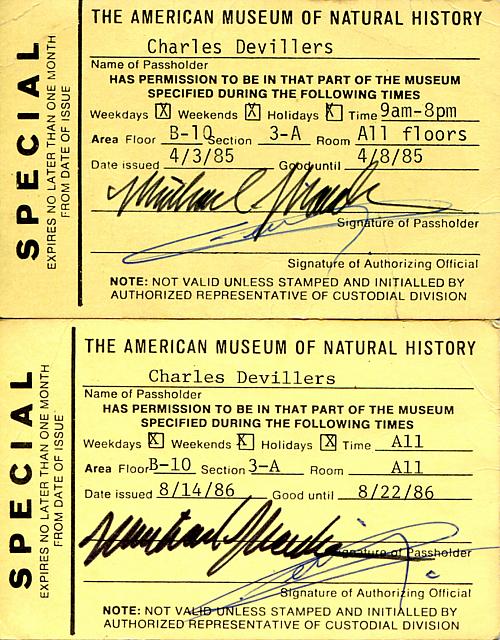 SPECIAL
EXPIRES NO LATER THAN ONE MONTH
FROM DATE OF ISSUE
THE AMERICAN MUSEUM OF NATURAL HISTORY
Charles Devillers
Name of Passholder
HAS PERMISSION TO BE IN THAT PART OF THE MUSEUM
SPECIFIED DURING THE FOLLOWING TIMES
Weekdays X Weekends X Holidays X Time 9am-8pm
Area Floor B-10 Section 3-A Room All floors
Date issued 4/3/85 Good until 4/8/85
Signature of Passholder
Signature of Authorizing Official
NOTE: NOT VALID UNLESS STAMPED AND INITIALLED BY
AUTHORIZED REPRESENTATIVE OF CUSTODIAL DIVISION
SPECIAL
EXPIRES NO LATER THAN ONE MONTH
FROM DATE OF ISSUE
THE AMERICAN MUSEUM OF NATURAL HISTORY
Charles Devillers
Name of Passholder
HAS PERMISSION TO BE IN THAT PART OF THE MUSEUM
SPECIFIED DURING THE FOLLOWING TIMES
Weekdays X Weekends X Holidays X Time All
Area Floor B-10 Section 3-A Room All
Date issued 8/14/86 Good until 8/22/86
Signature of Passholder
Signature of Authorizing Official
NOTE: NOT VALID UNLESS STAMPED AND INITIALLED BY
AUTHORIZED REPRESENTATIVE OF CUSTODIAL DIVISION